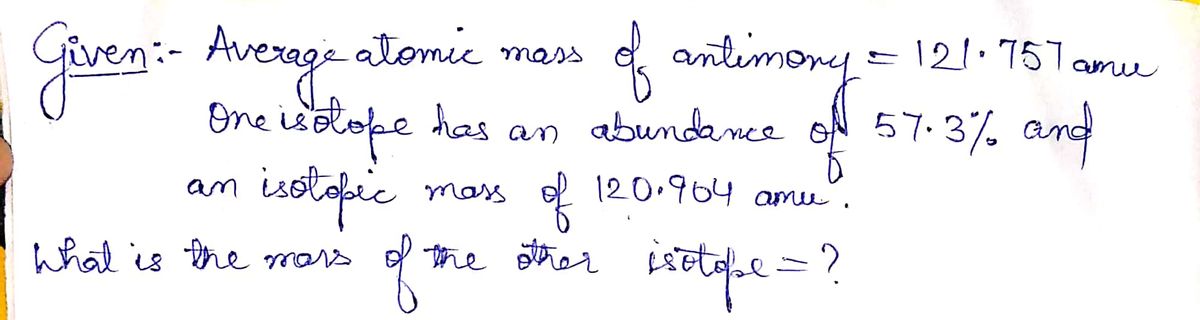 Given:- Average atomic mass of antimony = 121.757 amu
One isotope has an abundance of 57.3% and
an isotopic mass of 120.904 amu.
What is the mass of the other isotope = ?